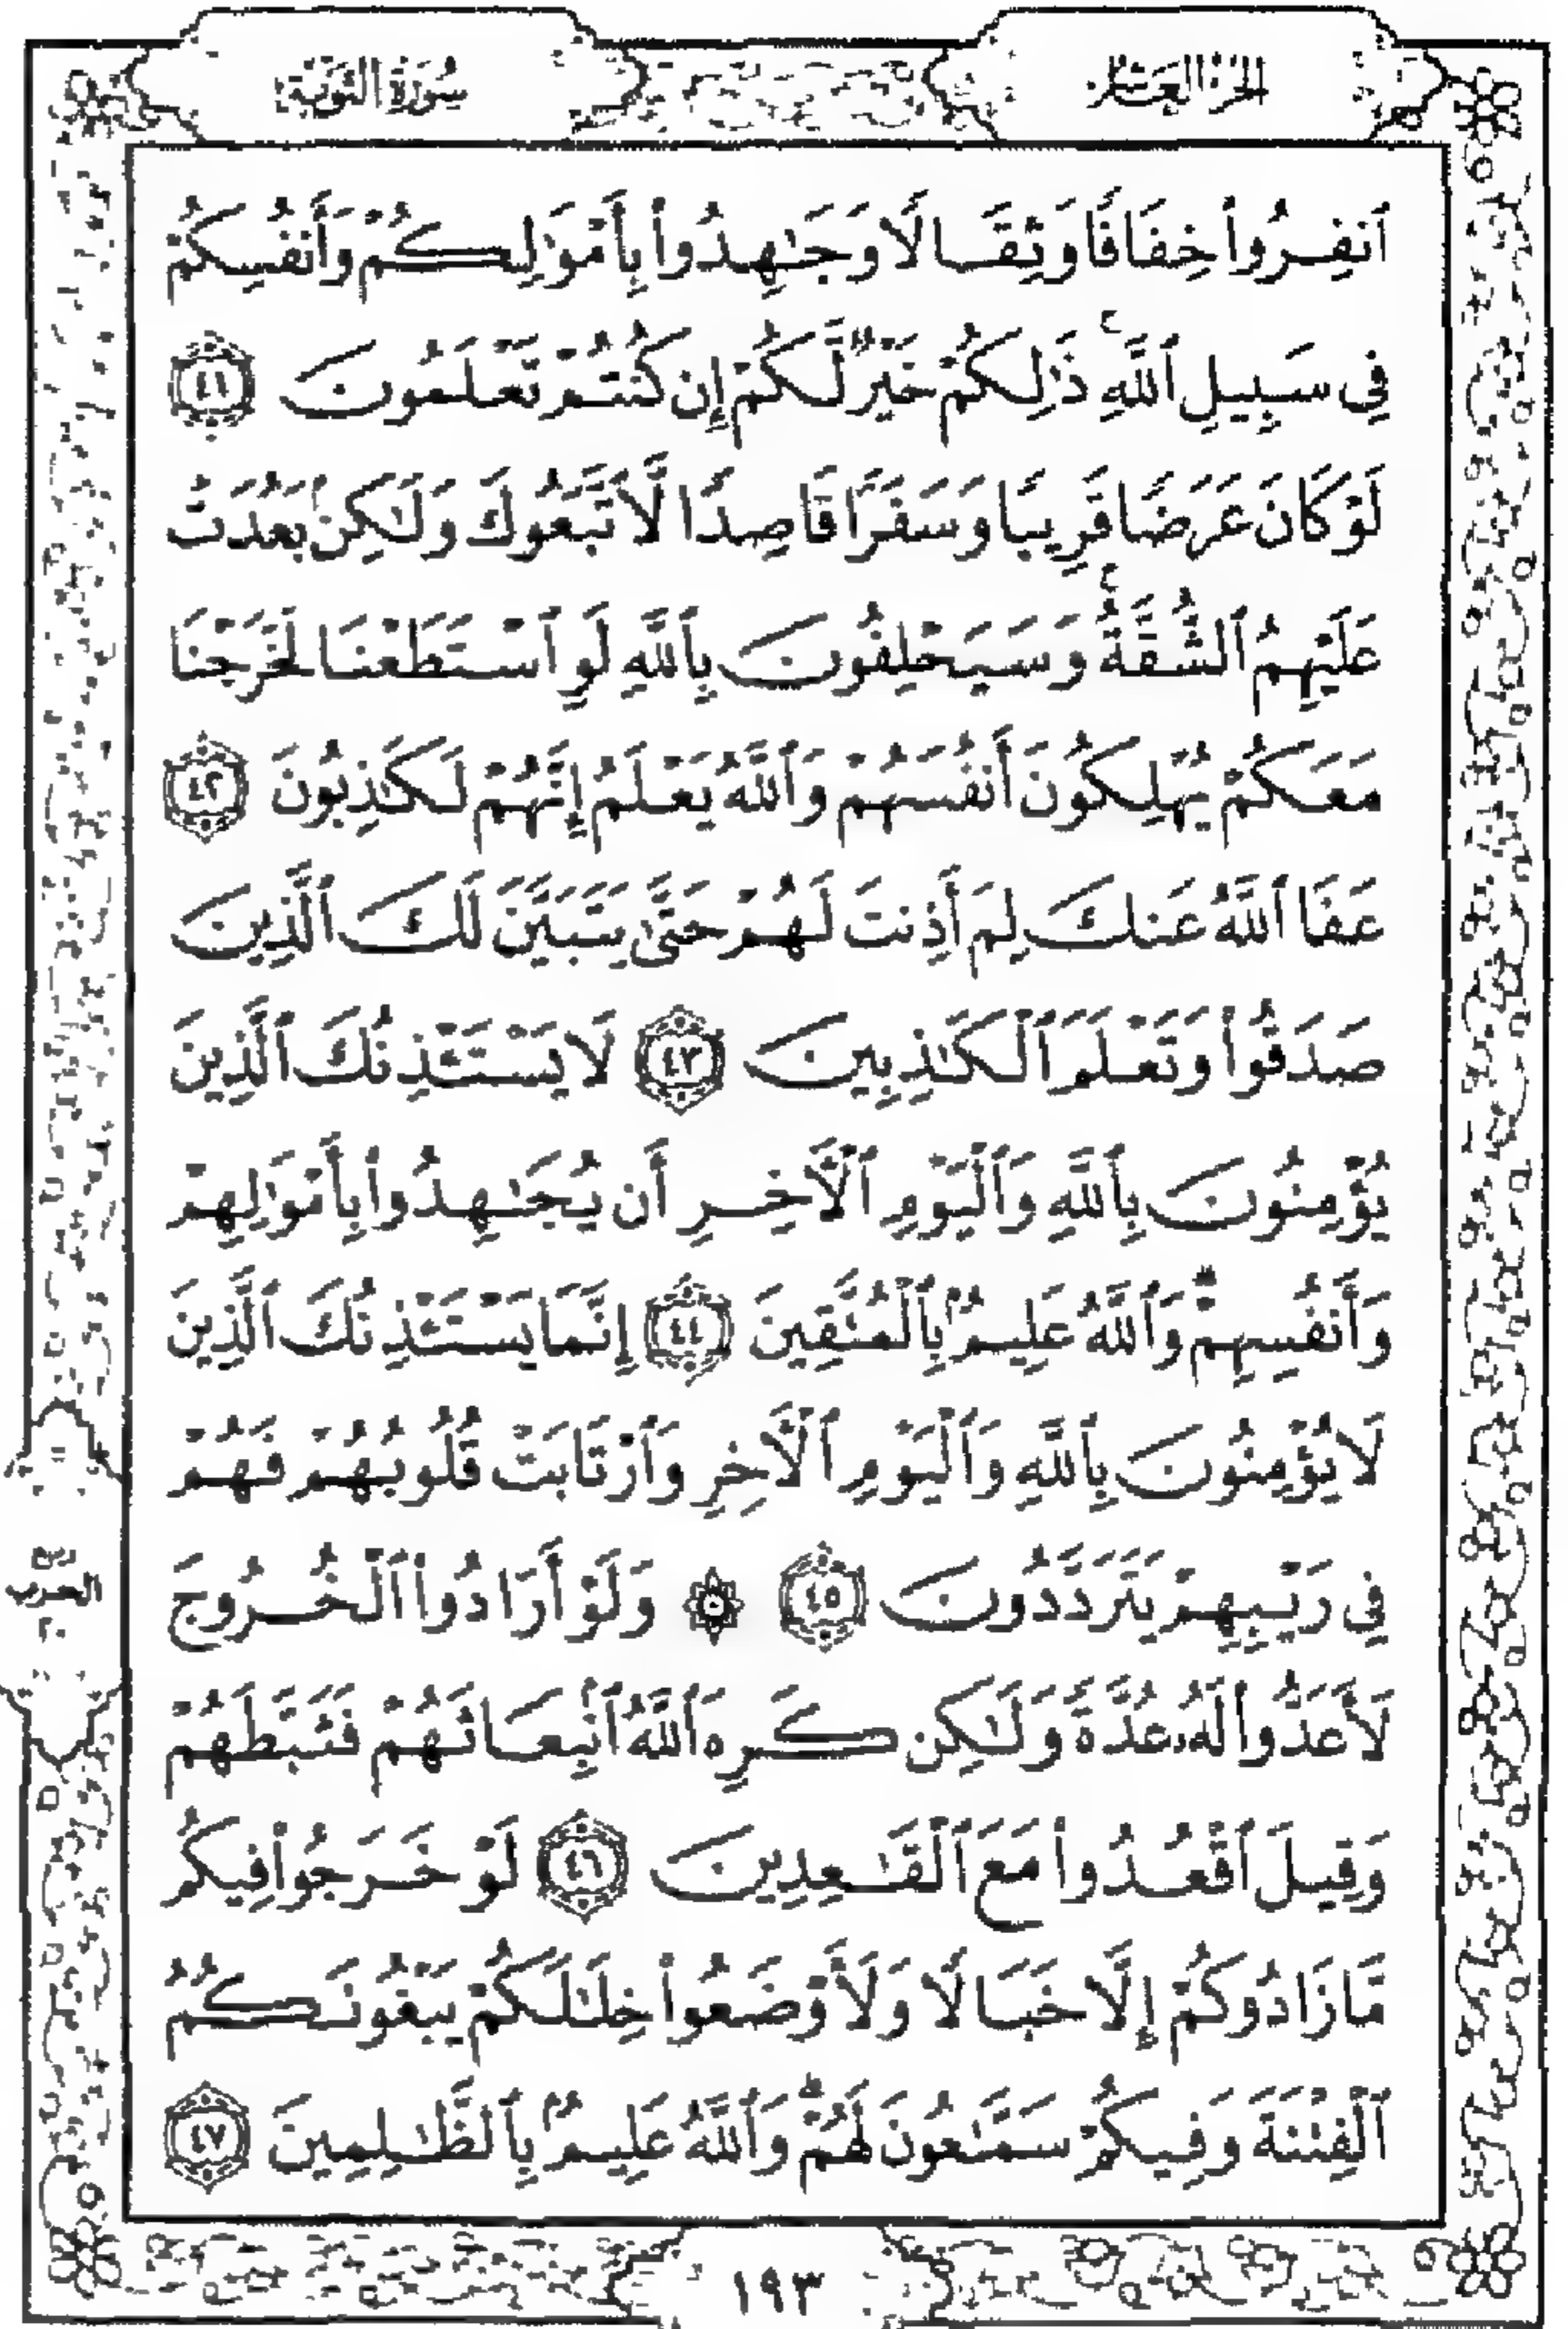 الجزء العاشر
سورة التوبة
ٱنفِرُوا۟ خِفَافًا وَثِقَالًا وَجَٰهِدُوا۟ بِأَمْوَٰلِكُمْ وَأَنفُسِكُمْ
فِى سَبِيلِ ٱللَّهِ ۚ ذَٰلِكُمْ خَيْرٌ لَّكُمْ إِن كُنتُمْ تَعْلَمُونَ ٤١
لَوْ كَانَ عَرَضًا قَرِيبًا وَسَفَرًا قَاصِدًا لَّٱتَّبَعُوكَ وَلَٰكِنۢ بَعُدَتْ
عَلَيْهِمُ ٱلشُّقَّةُ ۚ وَسَيَحْلِفُونَ بِٱللَّهِ لَوِ ٱسْتَطَعْنَا لَخَرَجْنَا
مَعَكُمْ يُهْلِكُونَ أَنفُسَهُمْ وَٱللَّهُ يَعْلَمُ إِنَّهُمْ لَكَٰذِبُونَ ٤٢
عَفَا ٱللَّهُ عَنكَ لِمَ أَذِنتَ لَهُمْ حَتَّىٰ يَتَبَيَّنَ لَكَ ٱلَّذِينَ
صَدَقُوا۟ وَتَعْلَمَ ٱلْكَٰذِبِينَ ٤٣ لَا يَسْتَـْٔذِنُكَ ٱلَّذِينَ
يُؤْمِنُونَ بِٱللَّهِ وَٱلْيَوْمِ ٱلْـَٔاخِرِ أَن يُجَٰهِدُوا۟ بِأَمْوَٰلِهِمْ
وَأَنفُسِهِمْ ۗ وَٱللَّهُ عَلِيمٌۢ بِٱلْمُتَّقِينَ ٤٤ إِنَّمَا يَسْتَـْٔذِنُكَ ٱلَّذِينَ
لَا يُؤْمِنُونَ بِٱللَّهِ وَٱلْيَوْمِ ٱلْـَٔاخِرِ وَٱرْتَابَتْ قُلُوبُهُمْ فَهُمْ
فِى رَيْبِهِمْ يَتَرَدَّدُونَ ٤٥ ۞ وَلَوْ أَرَادُوا۟ ٱلْخُرُوجَ
لَأَعَدُّوا۟ لَهُۥ عُدَّةً وَلَٰكِن كَرِهَ ٱللَّهُ ٱنۢبِعَاثَهُمْ فَثَبَّطَهُمْ
وَقِيلَ ٱقْعُدُوا۟ مَعَ ٱلْقَٰعِدِينَ ٤٦ لَوْ خَرَجُوا۟ فِيكُم
مَّا زَادُوكُمْ إِلَّا خَبَالًا وَلَأَوْضَعُوا۟ خِلَٰلَكُمْ يَبْغُونَكُمُ
ٱلْفِتْنَةَ وَفِيكُمْ سَمَّٰعُونَ لَهُمْ ۗ وَٱللَّهُ عَلِيمٌۢ بِٱلظَّٰلِمِينَ ٤٧
الحزب
١٩٣